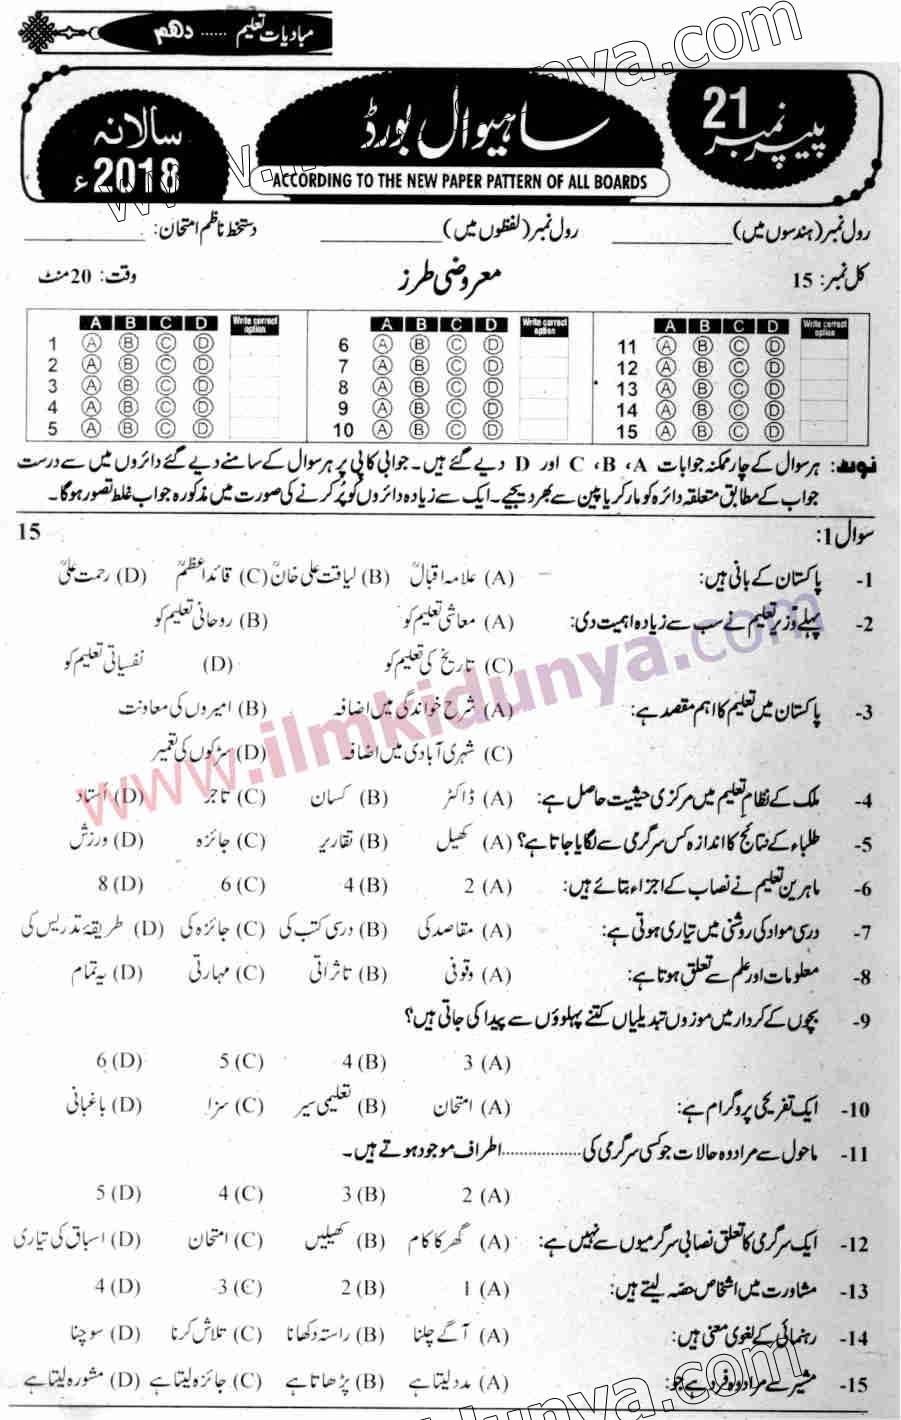 مبادیات تعلیم ...... دھم
پیپر نمبر 21
ساہیوال بورڈ
سالانہ 2018ء
ACCORDING TO THE NEW PAPER PATTERN OF ALL BOARDS
رول نمبر (ہندسوں میں)__________ رول نمبر (لفظوں میں)__________ دستخط ناظم امتحان: __________
کل نمبر: 15 معروضی طرز وقت: 20 منٹ
A B C D Write correct option A B C D Write correct option A B C D Write correct option
1 A B C D 6 A B C D 11 A B C D
2 A B C D 7 A B C D 12 A B C D
3 A B C D 8 A B C D 13 A B C D
4 A B C D 9 A B C D 14 A B C D
5 A B C D 10 A B C D 15 A B C D
نوٹ: ہر سوال کے چار ممکنہ جوابات A، B، C اور D دیے گئے ہیں۔ جوابی کاپی پر ہر سوال کے سامنے دیے گئے دائروں میں سے درست
جواب کے مطابق متعلقہ دائرہ کو مارکر یا پین سے بھر دیجیے۔ ایک سے زیادہ دائروں کو پُر کرنے کی صورت میں مذکورہ جواب غلط تصور ہوگا۔
سوال 1: 15
1- پاکستان کے بانی ہیں: (A) علامہ اقبالؒ (B) لیاقت علی خانؒ (C) قائد اعظمؒ (D) رحمت علیؒ
2- پہلے وزیر تعلیم نے سب سے زیادہ اہمیت دی: (A) معاشی تعلیم کو (B) روحانی تعلیم کو
(C) تاریخ کی تعلیم کو (D) نفسیاتی تعلیم کو
3- پاکستان میں تعلیم کا اہم مقصد ہے: (A) شرح خواندگی میں اضافہ (B) امیروں کی معاونت
(C) شہری آبادی میں اضافہ (D) سڑکوں کی تعمیر
4- ملک کے نظام تعلیم میں مرکزی حیثیت حاصل ہے: (A) ڈاکٹر (B) کسان (C) تاجر (D) اُستاد
5- طلباء کے نتائج کا اندازہ کس سرگرمی سے لگایا جاتا ہے؟ (A) کھیل (B) تقاریر (C) جائزہ (D) ورزش
6- ماہرین تعلیم نے نصاب کے اجزاء بتائے ہیں: (A) 2 (B) 4 (C) 6 (D) 8
7- درسی مواد کی روشنی میں تیاری ہوتی ہے: (A) مقاصد کی (B) درسی کتب کی (C) جائزہ کی (D) طریقۂ تدریس کی
8- معلومات اور علم سے تعلق ہوتا ہے: (A) وقوفی (B) تاثراتی (C) مہارتی (D) یہ تمام
9- بچوں کے کردار میں موزوں تبدیلیاں کتنے پہلوؤں سے پیدا کی جاتی ہیں؟
(A) 3 (B) 4 (C) 5 (D) 6
10- ایک تفریحی پروگرام ہے: (A) امتحان (B) تعلیمی سیر (C) سزا (D) باغبانی
11- ماحول سے مراد وہ حالات جو کسی سرگرمی کی .................. اطراف موجود ہوتے ہیں۔
(A) 2 (B) 3 (C) 4 (D) 5
12- ایک سرگرمی کا تعلق نصابی سرگرمیوں سے نہیں ہے: (A) گھر کا کام (B) کھیلیں (C) امتحان (D) اسباق کی تیاری
13- مشاورت میں اشخاص حصّہ لیتے ہیں: (A) 1 (B) 2 (C) 3 (D) 4
14- رہنمائی کے لغوی معنی ہیں: (A) آگے چلنا (B) راستہ دکھانا (C) تلاش کرنا (D) سوچنا
15- مشیر سے مراد وہ فرد ہے جو: (A) مدد لیتا ہے (B) پڑھاتا ہے (C) جائزہ لیتا ہے (D) مشورہ لیتا ہے
www.ilmkidunya.com